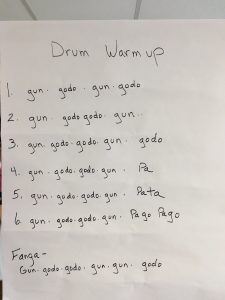 Drum Warm up
1. gun. godo.. gun. godo
2. gun. godo godo. gun..
3. gun. godo. godo. gun. godo
4. gun. godo. godo. gun. Pa
5. gun. godo. godo. gun. Pata
6. gun. godo. godo. gun. Pago Pago
Fanga -
Gun. godo. godo. gun. gun. godo